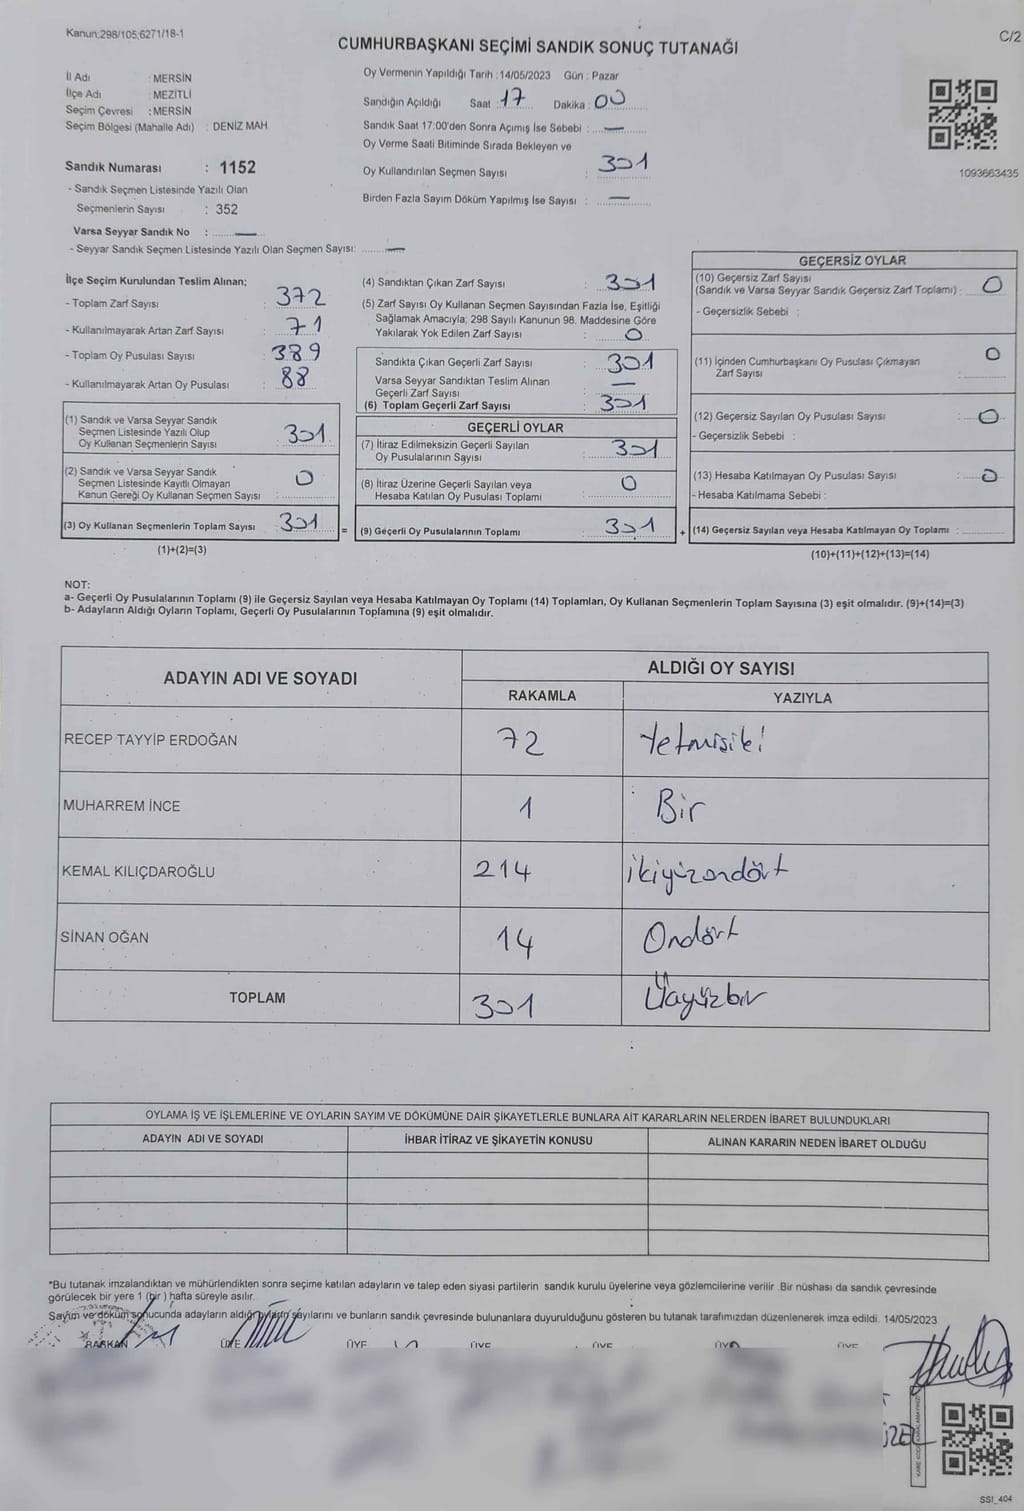 Kanun;298/105;6271/18-1
C/2
CUMHURBAŞKANI SEÇİMİ SANDIK SONUÇ TUTANAĞI
İl Adı : MERSİN
İlçe Adı : MEZİTLİ
Seçim Çevresi : MERSİN
Seçim Bölgesi (Mahalle Adı) : DENİZ MAH.
Sandık Numarası : 1152
- Sandık Seçmen Listesinde Yazılı Olan
Seçmenlerin Sayısı : 352
Varsa Seyyar Sandık No : —
- Seyyar Sandık Seçmen Listesinde Yazılı Olan Seçmen Sayısı: —
Oy Vermenin Yapıldığı Tarih : 14/05/2023 Gün : Pazar
Sandığın Açıldığı Saat : 17 Dakika : 00
Sandık Saat 17:00'den Sonra Açımış İse Sebebi : —
Oy Verme Saati Bitiminde Sırada Bekleyen ve
Oy Kullandırılan Seçmen Sayısı : 301
Birden Fazla Sayım Döküm Yapılmış İse Sayısı : —
1093663435
İlçe Seçim Kurulundan Teslim Alınan;
- Toplam Zarf Sayısı : 372
- Kullanılmayarak Artan Zarf Sayısı : 71
- Toplam Oy Pusulası Sayısı : 389
- Kullanılmayarak Artan Oy Pusulası : 88
(1) Sandık ve Varsa Seyyar Sandık
Seçmen Listesinde Yazılı Olup
Oy Kullanan Seçmenlerin Sayısı : 301
(2) Sandık ve Varsa Seyyar Sandık
Seçmen Listesinde Kayıtlı Olmayan
Kanun Gereği Oy Kullanan Seçmen Sayısı : 0
(3) Oy Kullanan Seçmenlerin Toplam Sayısı : 301
(1)+(2)=(3)
=
(4) Sandıktan Çıkan Zarf Sayısı : 301
(5) Zarf Sayısı Oy Kullanan Seçmen Sayısından Fazla İse, Eşitliği
Sağlamak Amacıyla; 298 Sayılı Kanunun 98. Maddesine Göre
Yakılarak Yok Edilen Zarf Sayısı : 0
Sandıkta Çıkan Geçerli Zarf Sayısı : 301
Varsa Seyyar Sandıktan Teslim Alınan
Geçerli Zarf Sayısı : —
(6) Toplam Geçerli Zarf Sayısı : 301
GEÇERLİ OYLAR
(7) İtiraz Edilmeksizin Geçerli Sayılan
Oy Pusulalarının Sayısı : 301
(8) İtiraz Üzerine Geçerli Sayılan veya
Hesaba Katılan Oy Pusulası Toplamı : 0
(9) Geçerli Oy Pusulalarının Toplamı : 301
+
GEÇERSİZ OYLAR
(10) Geçersiz Zarf Sayısı
(Sandık ve Varsa Seyyar Sandık Geçersiz Zarf Toplamı) : 0
- Geçersizlik Sebebi :
(11) İçinden Cumhurbaşkanı Oy Pusulası Çıkmayan
Zarf Sayısı : 0
(12) Geçersiz Sayılan Oy Pusulası Sayısı : 0
- Geçersizlik Sebebi :
(13) Hesaba Katılmayan Oy Pusulası Sayısı : 0
- Hesaba Katılmama Sebebi :
(14) Geçersiz Sayılan veya Hesaba Katılmayan Oy Toplamı :
(10)+(11)+(12)+(13)=(14)
NOT:
a- Geçerli Oy Pusulalarının Toplamı (9) ile Geçersiz Sayılan veya Hesaba Katılmayan Oy Toplamı (14) Toplamları, Oy Kullanan Seçmenlerin Toplam Sayısına (3) eşit olmalıdır. (9)+(14)=(3)
b- Adayların Aldığı Oyların Toplamı, Geçerli Oy Pusulalarının Toplamına (9) eşit olmalıdır.
ADAYIN ADI VE SOYADI
ALDIĞI OY SAYISI
RAKAMLA YAZIYLA
RECEP TAYYİP ERDOĞAN 72 Yetmişiki
MUHARREM İNCE 1 Bir
KEMAL KILIÇDAROĞLU 214 ikiyüzondört
SİNAN OĞAN 14 Ondört
TOPLAM 301 Üçyüzbir
OYLAMA İŞ VE İŞLEMLERİNE VE OYLARIN SAYIM VE DÖKÜMÜNE DAİR ŞİKAYETLERLE BUNLARA AİT KARARLARIN NELERDEN İBARET BULUNDUKLARI
ADAYIN ADI VE SOYADI İHBAR İTİRAZ VE ŞİKAYETİN KONUSU ALINAN KARARIN NEDEN İBARET OLDUĞU
*Bu tutanak imzalandıktan ve mühürlendikten sonra seçime katılan adayların ve talep eden siyasi partilerin sandık kurulu üyelerine veya gözlemcilerine verilir. Bir nüshası da sandık çevresinde
görülecek bir yere 1 (bir) hafta süreyle asılır.
Sayım ve döküm sonucunda adayların aldığı oyların sayılarını ve bunların sandık çevresinde bulunanlara duyurulduğunu gösteren bu tutanak tarafımızdan düzenlenerek imza edildi. 14/05/2023
BAŞKAN ÜYE ÜYE ÜYE ÜYE ÜYE ÜYE
SSI_404